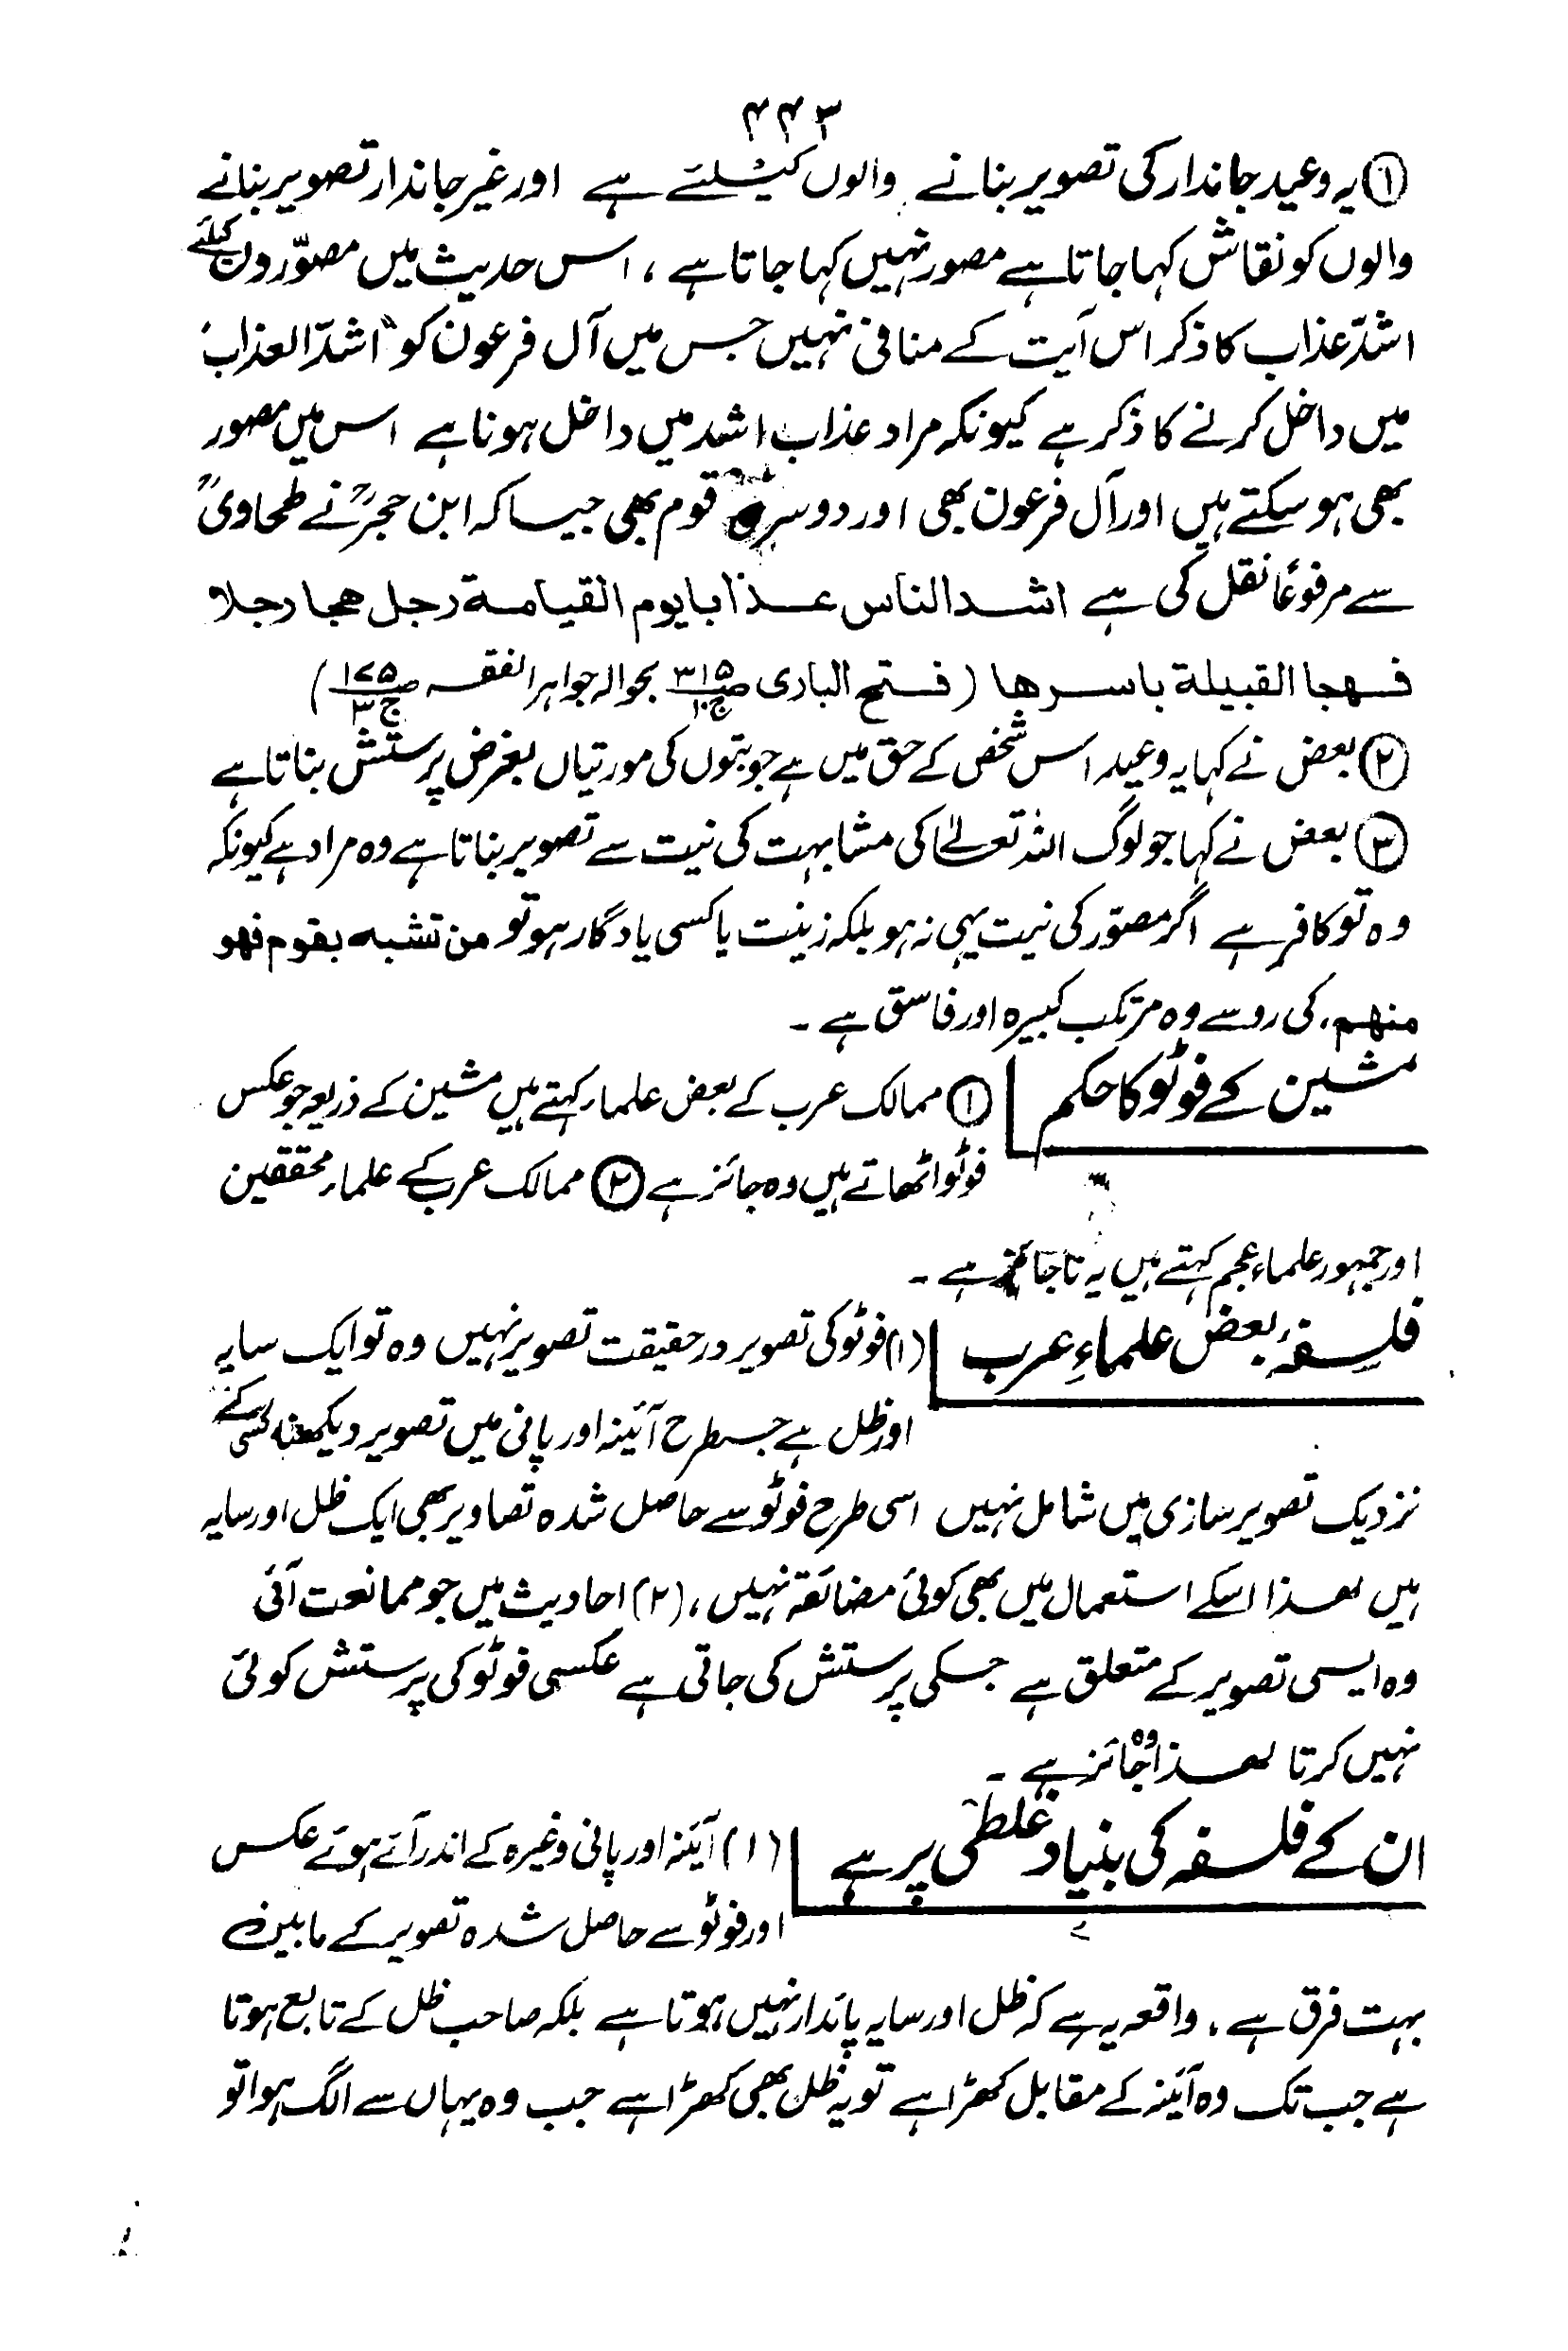 ۴۴۳
① یہ وعید جاندار کی تصویر بنانے والوں کیلئے ہے اور غیر جاندار تصویر بنانے
والوں کو نقاش کہا جاتا ہے مصور نہیں کہا جاتا ہے ، اس حدیث میں مصوّروں کیلئے
اشدّ عذاب کا ذکر اس آیت کے منافی نہیں جس میں آل فرعون کو "اشدّ العذاب"
میں داخل کرنے کا ذکر ہے کیونکہ مراد عذاب اشد میں داخل ہونا ہے اس میں مصور
بھی ہو سکتے ہیں اور آل فرعون بھی اور دوسری قوم بھی جیسا کہ ابن حجرؒ نے طحاویؒ
سے مرفوعًا نقل کی ہے اشد الناس عذابا یوم القیامة رجل هجا رجلا
فهجا القبیلة باسرها (فتح الباری ص۳۱۵ ج۱۰ بحوالہ جواہر الفقہ ص۱۷۵ ج۳)
② بعض نے کہا یہ وعید اس شخص کے حق میں ہے جو بتوں کی مورتیاں بغرض پرستش بناتا ہے
③ بعض نے کہا جو لوگ اللہ تعالیٰ کی مشابہت کی نیت سے تصویر بناتا ہے وہ مراد ہے کیونکہ
وہ تو کافر ہے اگر مصوّر کی نیت یہی نہ ہو بلکہ زینت یا کسی یادگار ہو تو من تشبه بقوم فهو
منهم، کی رو سے وہ مرتکب کبیرہ اور فاسق ہے ۔
مشین کے فوٹو کا حکم ① ممالک عرب کے بعض علماء کہتے ہیں مشین کے ذریعہ جو عکس
فوٹو اٹھاتے ہیں وہ جائز ہے ② ممالک عرب کے علماء محققین
اور جمہور علماء عجم کہتے ہیں یہ ناجائز ہے ۔
فلسفۂ بعض علماءِ عرب (۱) فوٹو کی تصویر درحقیقت تصویر نہیں وہ تو ایک سایہ
اور ظل ہے جسطرح آئینہ اور پانی میں تصویر دیکھنا کسی کے
نزدیک تصویر سازی میں شامل نہیں اسی طرح فوٹو سے حاصل شدہ تصاویر بھی ایک ظل اور سایہ
ہیں لھذا اسکے استعمال میں بھی کوئی مضائقہ نہیں ، (۲) احادیث میں جو ممانعت آئی
وہ ایسی تصویر کے متعلق ہے جسکی پرستش کی جاتی ہے عکسی فوٹو کی پرستش کوئی
نہیں کرتا لھذا وہ جائز ہے ۔
ان کے فلسفہ کی بنیاد غلطی پر ہے (۱) آئینہ اور پانی وغیرہ کے اندر آئے ہوئے عکس
اور فوٹو سے حاصل شدہ تصویر کے مابین
بہت فرق ہے ، واقعہ یہ ہے کہ ظل اور سایہ پائدار نہیں ہوتا ہے بلکہ صاحب ظل کے تابع ہوتا
ہے جب تک وہ آئینہ کے مقابل کھڑا ہے تو یہ ظل بھی کھڑا ہے جب وہ یہاں سے الگ ہوا تو